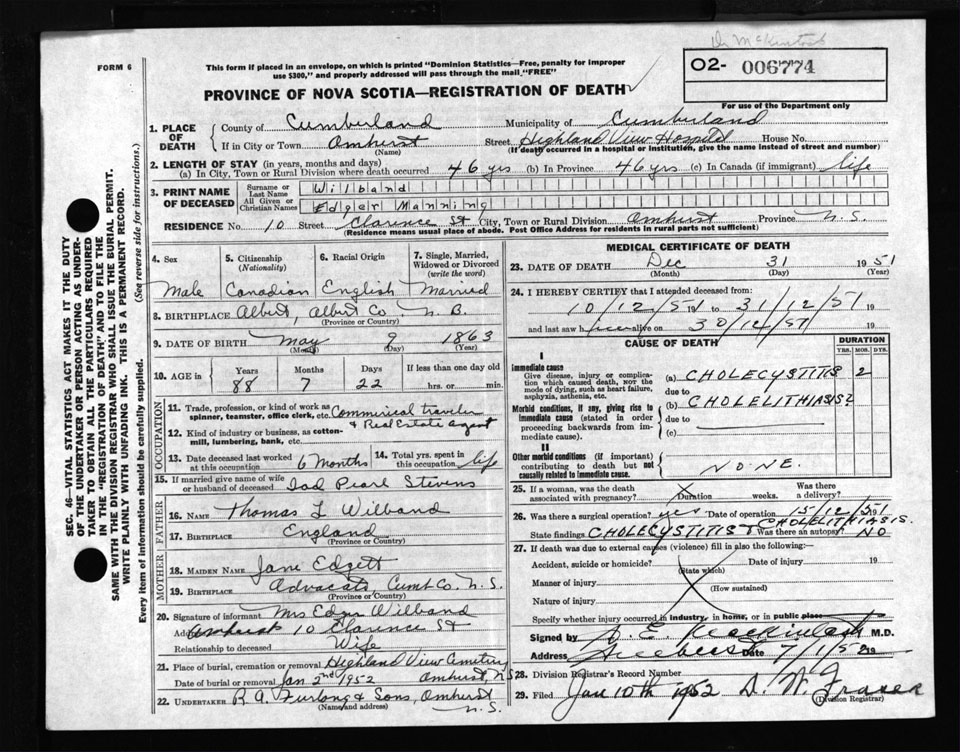 Dr McKintosh
FORM 6
This form if placed in an envelope, on which is printed "Dominion Statistics—Free, penalty for improper
use $300," and properly addressed will pass through the mail "FREE"
O2- 006774
PROVINCE OF NOVA SCOTIA—REGISTRATION OF DEATH
For use of the Department only
1. PLACE OF DEATH
County of Cumberland Municipality of Cumberland
If in City or Town Amherst Street Highland View Hospital House No.
(Name) (If death occurred in a hospital or institution, give the name instead of street and number)
2. LENGTH OF STAY (in years, months and days)
(a) In City, Town or Rural Division where death occurred 46 yrs (b) In Province 46 yrs (c) In Canada (if immigrant) life
3. PRINT NAME OF DECEASED
Surname or Last Name Wilband
All Given or Christian Names Edger Manning
RESIDENCE No. 10 Street Clarence St City, Town or Rural Division Amherst Province N.S.
(Residence means usual place of abode. Post Office Address for residents in rural parts not sufficient)
4. Sex Male
5. Citizenship (Nationality) Canadian
6. Racial Origin English
7. Single, Married, Widowed or Divorced (write the word) Married
8. BIRTHPLACE Albert, Albert Co. N.B.
(Province or Country)
9. DATE OF BIRTH May 9 1863
(Month) (Day) (Year)
10. AGE in Years Months Days If less than one day old
88 7 22 hrs. or min.
OCCUPATION
11. Trade, profession, or kind of work as spinner, teamster, office clerk, etc. Commirical traveler
& Real Estate agent
12. Kind of industry or business, as cotton-mill, lumbering, bank, etc.
13. Date deceased last worked at this occupation 6 months 14. Total yrs. spent in this occupation life
15. If married give name of wife or husband of deceased Pearl Stevens
FATHER
16. NAME Thomas L Wilband
17. BIRTHPLACE England
(Province or Country)
MOTHER
18. MAIDEN NAME Jane Edgett
19. BIRTHPLACE Advocate, Cumb Co. N.S.
(Province or Country)
20. Signature of informant Mrs Edger Wilband
Address Amherst 10 Clarence St
Relationship to deceased Wife
21. Place of burial, cremation or removal Highland View Cemetery
Date of burial or removal Jan 2nd 1952 Amherst, N.S
22. UNDERTAKER R A Furlong & Sons, Amherst
(Name and address) N.S.
MEDICAL CERTIFICATE OF DEATH
23. DATE OF DEATH Dec 31 1951
(Month) (Day) (Year)
24. I HEREBY CERTIFY that I attended deceased from:
10/12/51 19 to 31/12/51 19
and last saw h alive on 30/12/51 19
CAUSE OF DEATH
DURATION
YRS. MOS. DYS.
I
Immediate cause
Give disease, injury or complication which caused death, NOT the mode of dying, such as heart failure, asphyxia, asthenia, etc.
(a) CHOLECYSTITIS 2
due to
Morbid conditions, if any, giving rise to immediate cause (stated in order proceeding backwards from immediate cause).
(b) CHOLELITHIASIS ?
due to
(c)
II
Other morbid conditions (if important) contributing to death but not causally related to immediate cause.
NONE.
25. If a woman, was the death associated with pregnancy? Duration weeks. Was there a delivery?
26. Was there a surgical operation? yes Date of operation 15/12/51
State findings CHOLECYSTITIS & CHOLELITHIASIS. Was there an autopsy? NO
27. If death was due to external causes (violence) fill in also the following:—
Accident, suicide or homicide? Date of injury 19
(State which)
Manner of injury
(How sustained)
Nature of injury
Specify whether injury occurred in industry, in home, or in public place
Signed by M.D.
Address Amherst Date 7/1/52 19
28. Division Registrar's Record Number
29. Filed Jan 10th 1952 D. W. Fraser
(Division Registrar)
SEC. 46—VITAL STATISTICS ACT MAKES IT THE DUTY
OF THE UNDERTAKER OR PERSON ACTING AS UNDER-
TAKER TO OBTAIN ALL THE PARTICULARS REQUIRED
IN THE "REGISTRATION OF DEATH" AND TO FILE THE
SAME WITH THE DIVISION REGISTRAR WHO SHALL ISSUE THE BURIAL PERMIT.
WRITE PLAINLY WITH UNFADING INK. THIS IS A PERMANENT RECORD.
Every item of information should be carefully supplied. (See reverse side for instructions.)